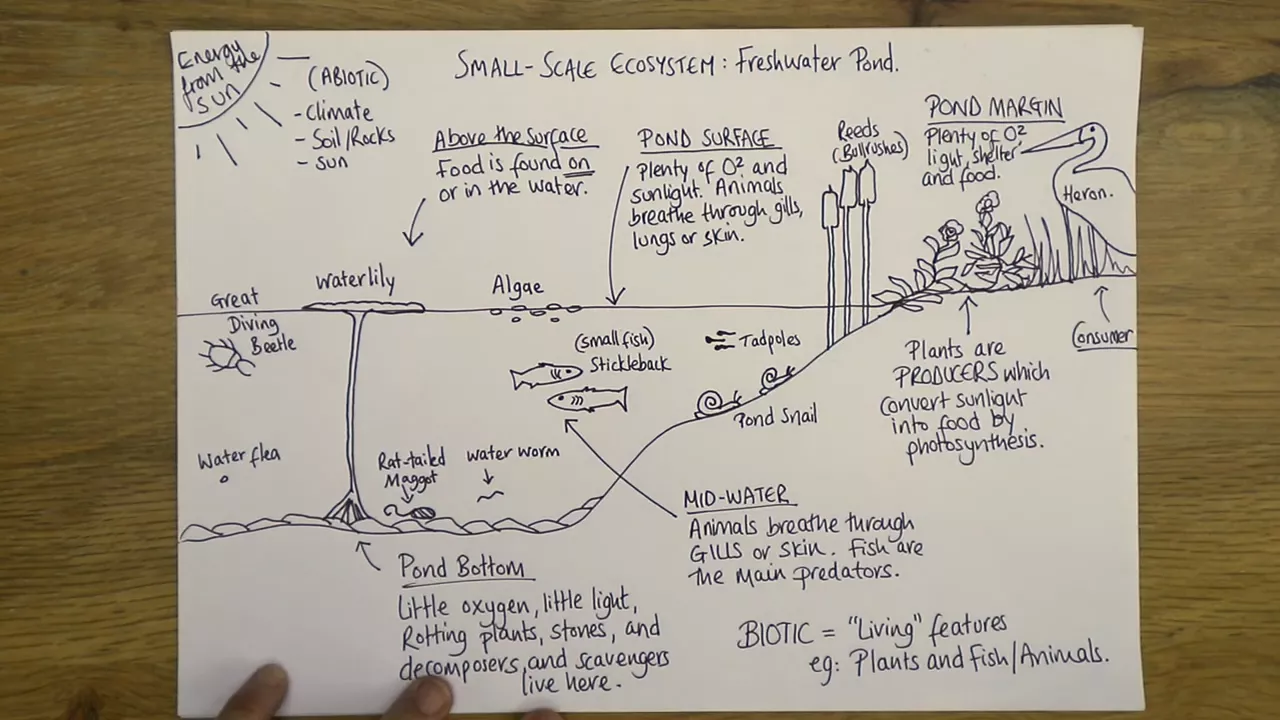 Energy
from the
sun
(ABIOTIC)
- Climate
- Soil/Rocks
- Sun
SMALL-SCALE ECOSYSTEM: Freshwater Pond.
Above the surface
Food is found on
or in the water.
POND SURFACE
Plenty of O² and
sunlight. Animals
breathe through gills,
lungs or skin.
Reeds
(Bullrushes)
POND MARGIN
Plenty of O²
light, shelter
and food.
Heron.
Waterlily
Algae
Great
Diving
Beetle
(small fish)
Stickleback
Tadpoles
Pond Snail
Plants are
PRODUCERS which
convert sunlight
into food by
photosynthesis.
Consumer
Water flea
Rat-tailed
Maggot
water worm
MID-WATER
Animals breathe through
GILLS or SKIN. Fish are
the main predators.
Pond Bottom
Little oxygen, little light,
Rotting plants, stones, and
decomposers, and scavengers
live here.
BIOTIC = "Living" features
eg: Plants and Fish/Animals.